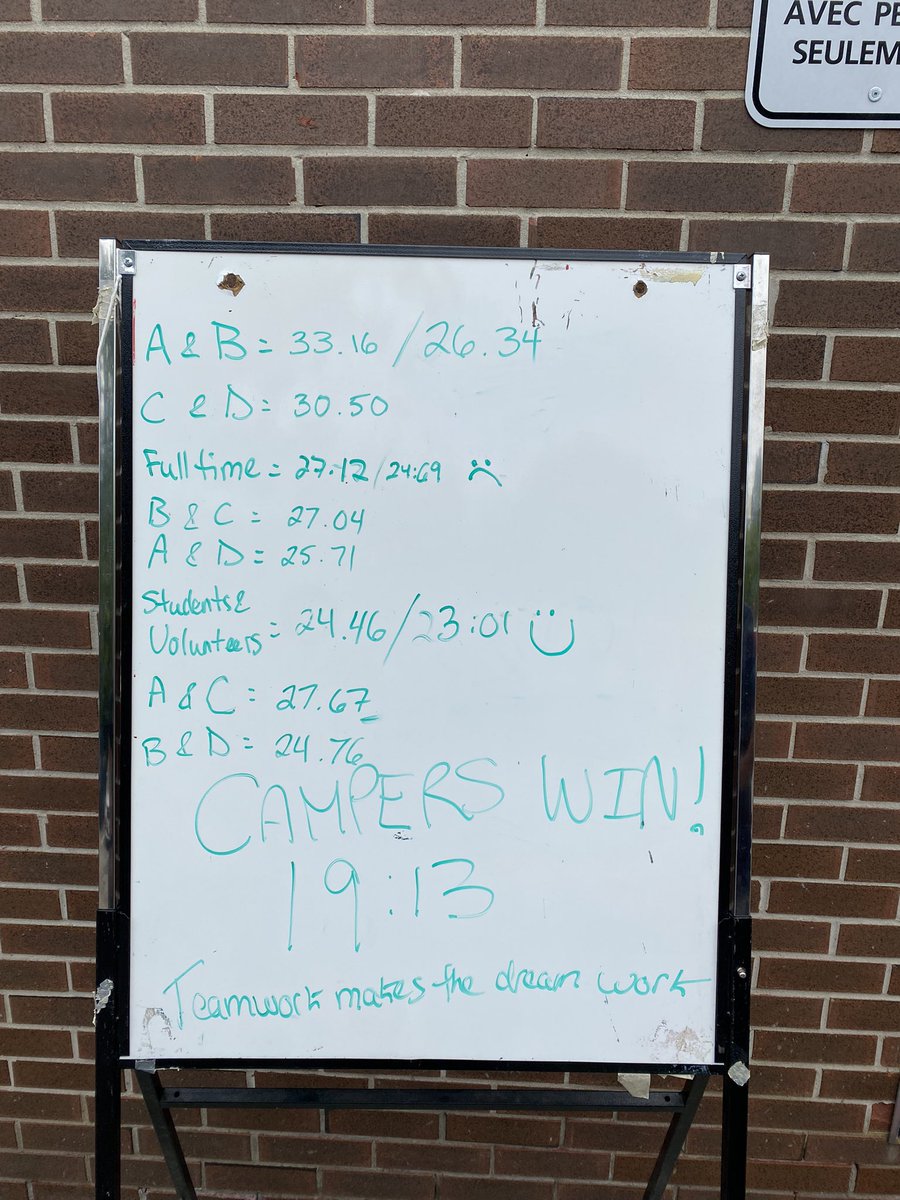 AVEC PE
SEULEM
A & B = 33.16 / 26.34
C & D = 30.50
Full time = 27.12 / 24:69
B & C = 27.04
A & D = 25.71
Students &
Volunteers = 24.46/23:01
A & C = 27.67
B & D = 24.76
CAMPERS WIN!
19:13
Teamwork makes the dream work